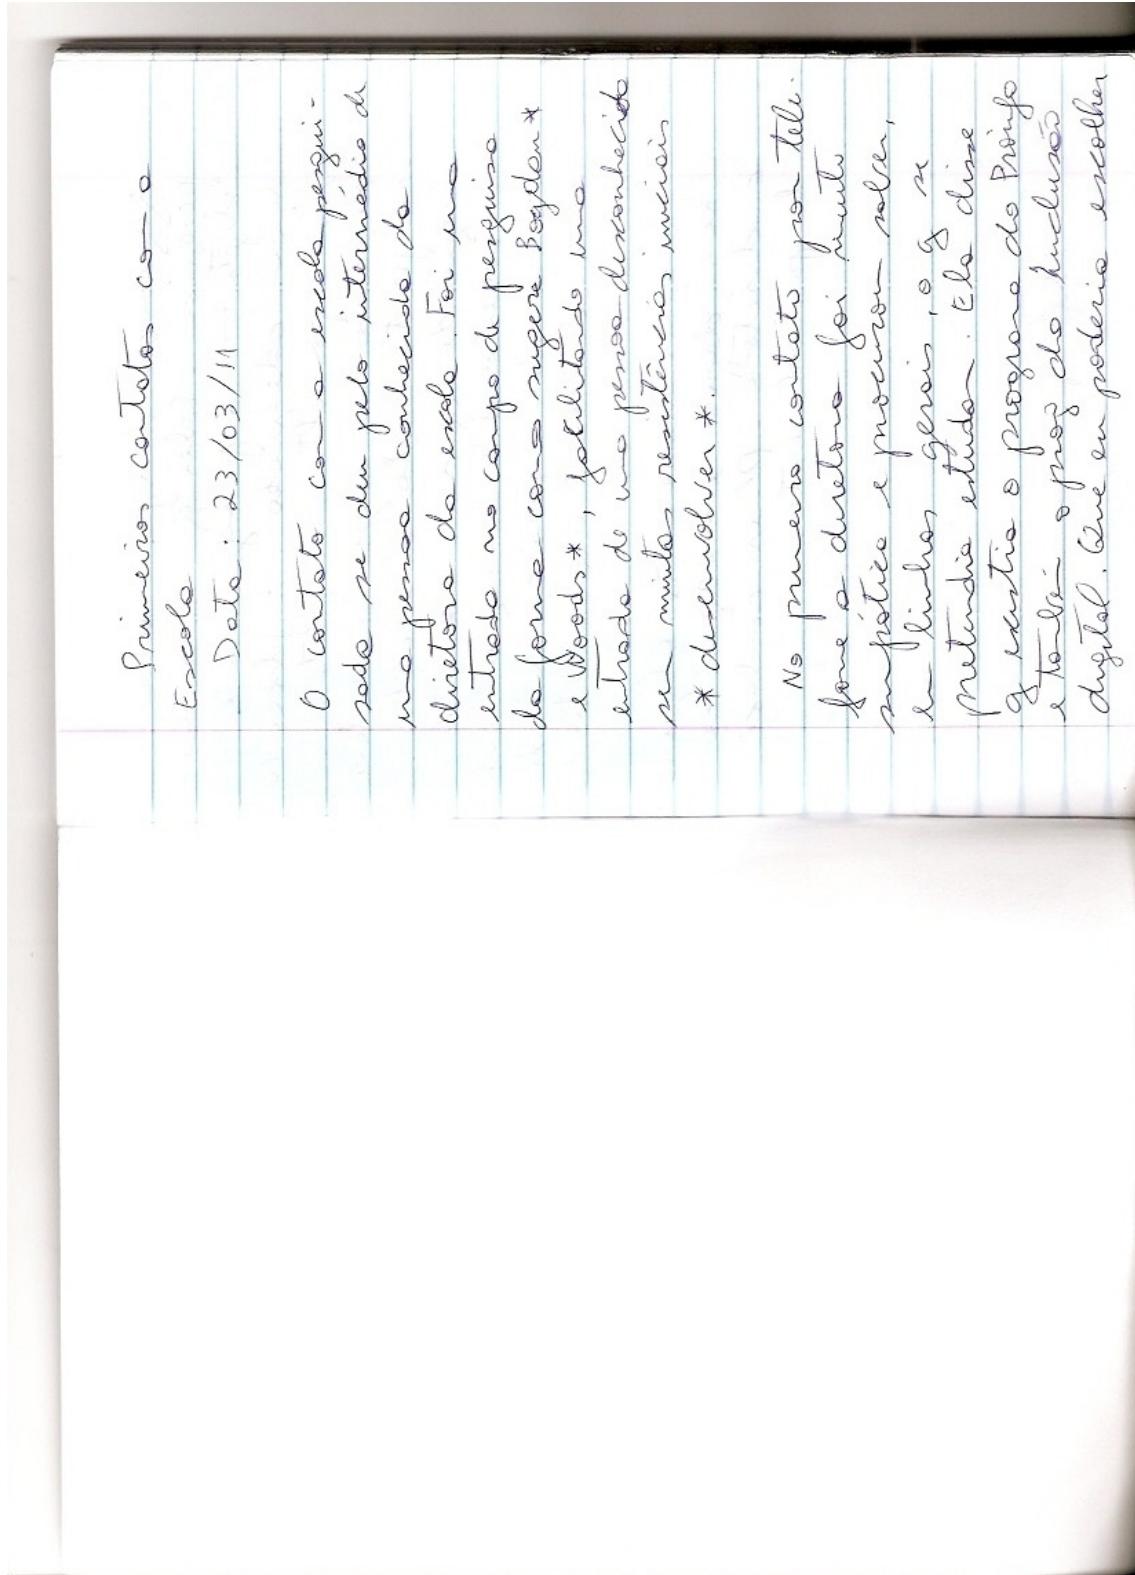 Primeiros contatos com a
Escola
Data: 23/03/11
O contato com a escola pesqui-
sada se deu pelo intermédio de
uma pessoa conhecida da
diretora da escola. Foi uma
entrada no campo de pesquisa
da forma como sugere Bogdan*
e Woods*, facilitando uma
entrada de uma pessoa desconhecida
sem muitas resistências iniciais
* desenvolver *.
No primeiro contato por tele-
fone a diretora foi muito
simpática e procurou saber,
em linhas gerais, o q se
pretendia estudar. Ela disse
q existia o programa do Proinfo
e também o prog da Inclusão
digital. Que eu poderia escolher